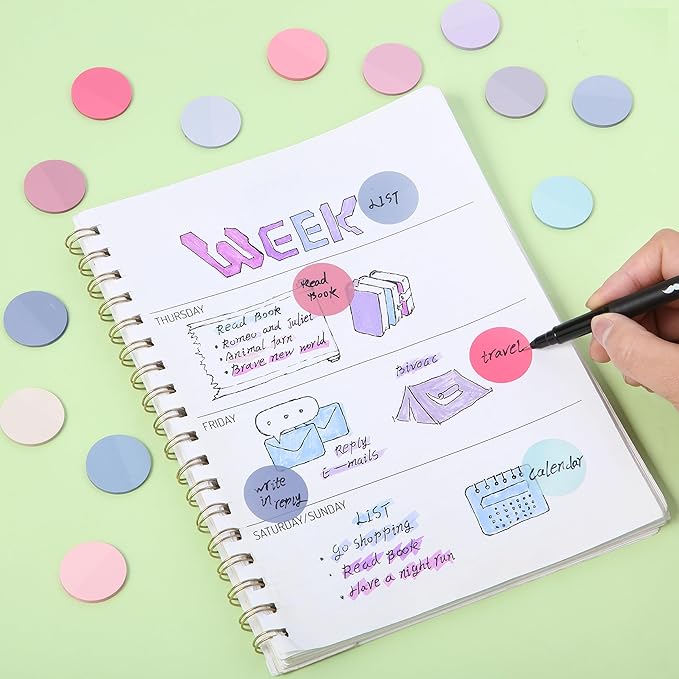 WEEK
LIST
THURSDAY
Read Book
• Romeo and Juliet
• Animal farn
• Brave new world
Read
Book
travel
FRIDAY
Bivoac
Reply
E-mails
write
in
reply
calendar
SATURDAY/SUNDAY
LIST
• Go shopping
• Read Book
• Have a night run